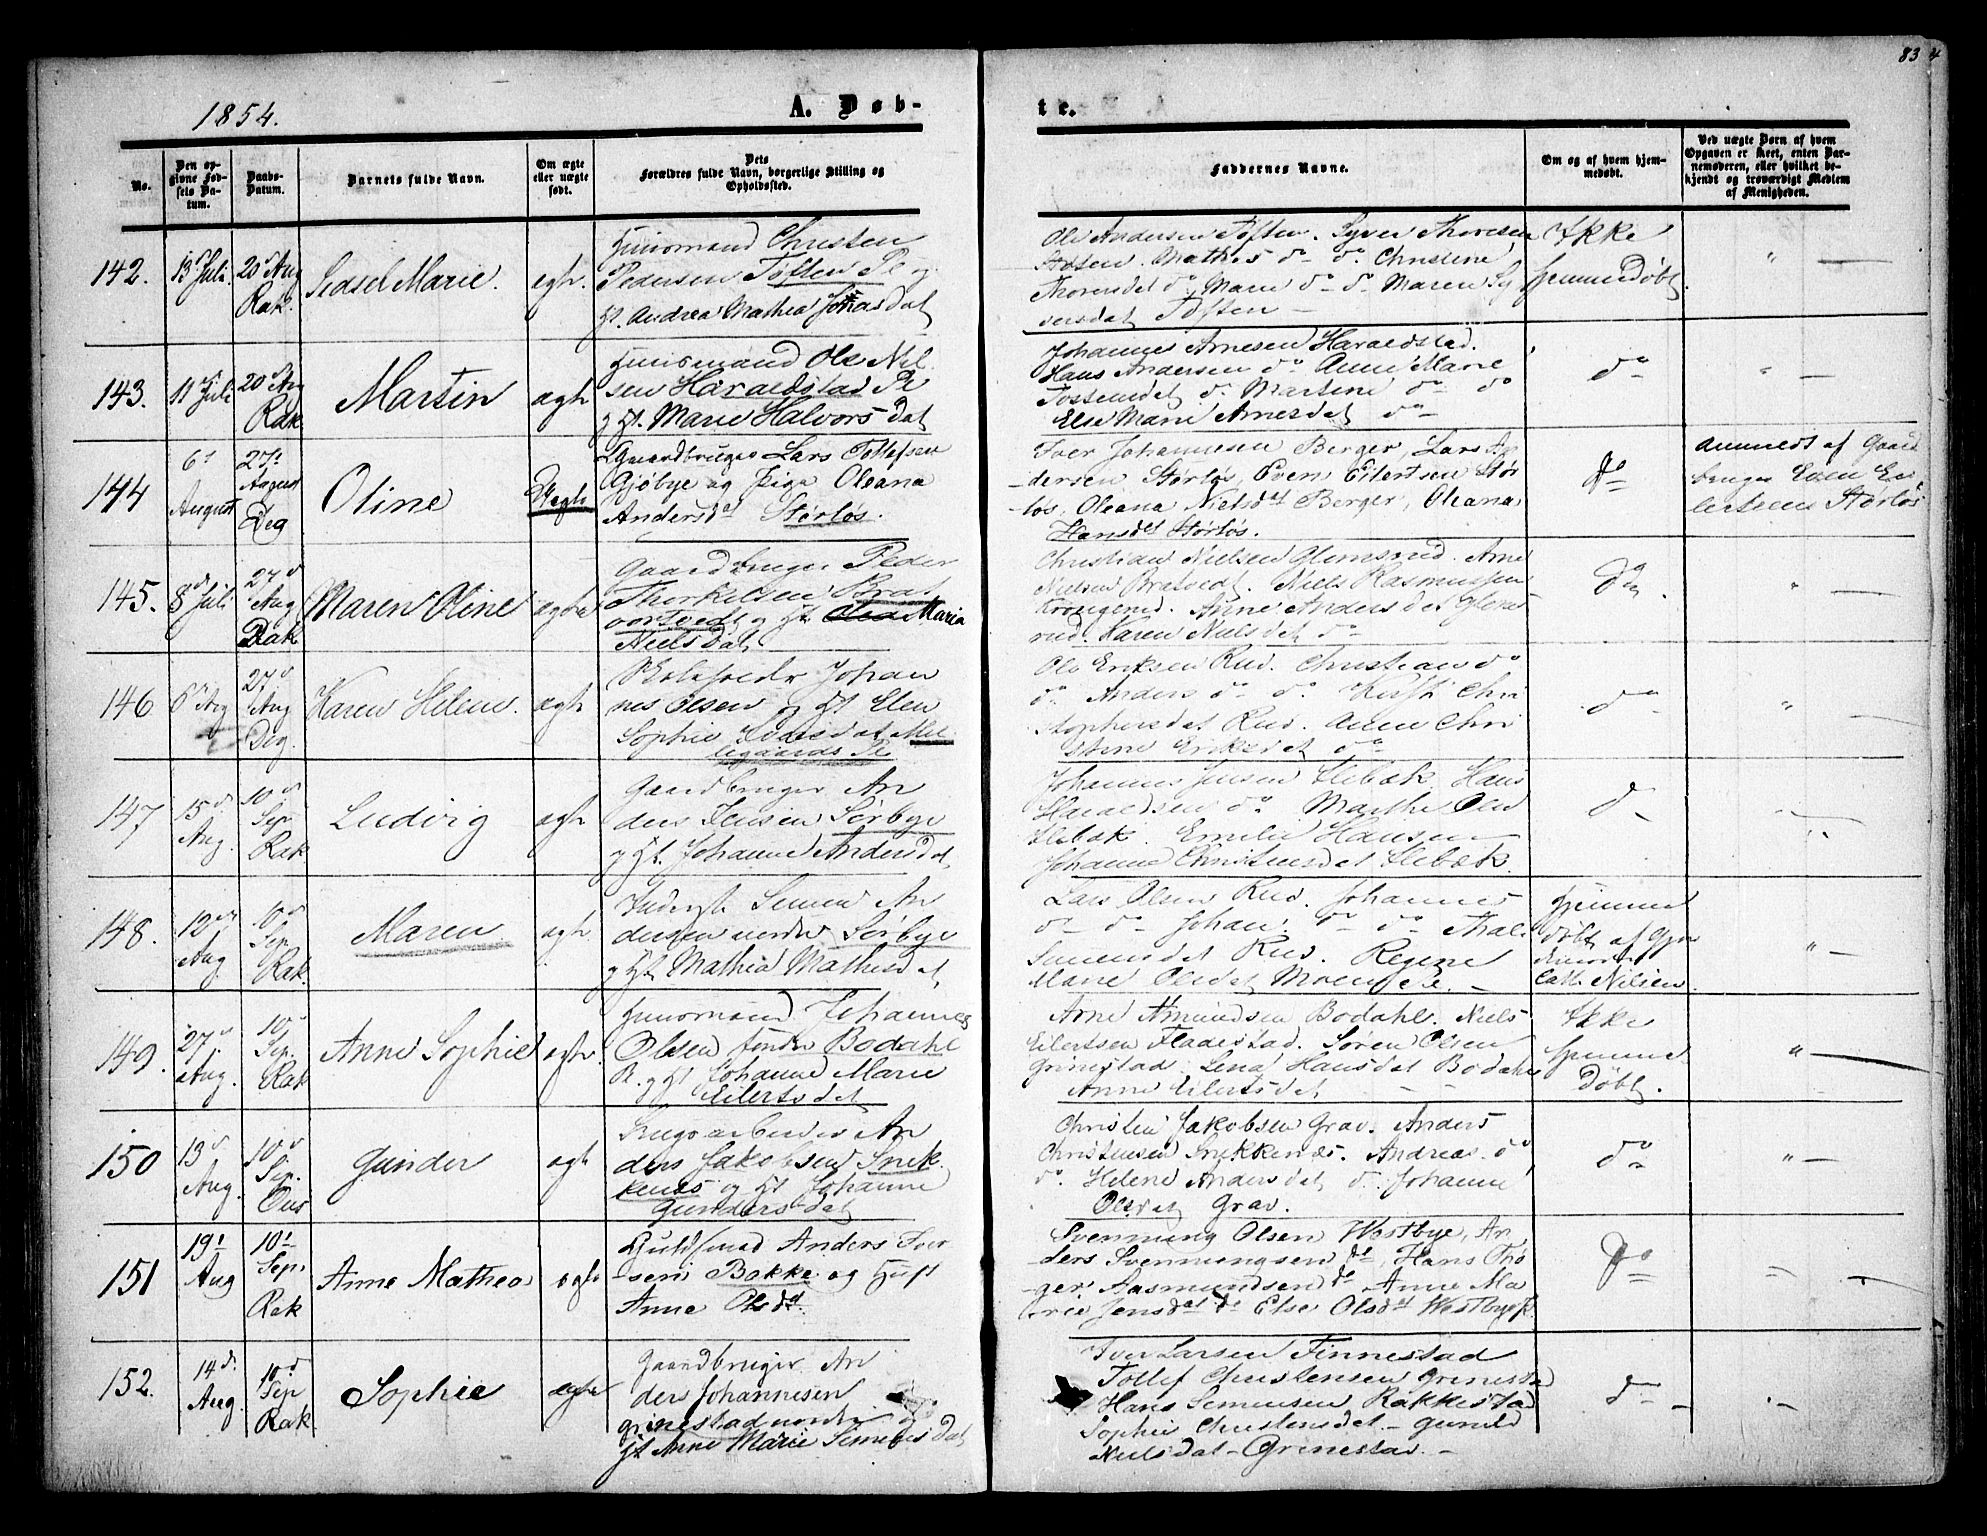 83
1854.
A. Døb-
te.
No.
Den opgivne Fødsels Datum.
Daabs-Datum.
Barnets fulde Navn.
Om ægte eller uægte født.
Dets Forældres fulde Navn, borgerlige Stilling og Opholdssted.
Faddernes Navne.
Om og af hvem hjemmedøbt.
Ved uægte Børn af hvem Opgaven er skeet, enten Barnemoderen, eller hvilket bekjendt og troværdigt Medlem af Menigheden.
142.
13 Juli
20 Aug
Rak.
Sidsel Marie.
ægte
Huusmand Christen
Pedersen Toften Pl og
H. Andrea Mathea Jonasdat
Ole Andersen Toften. Syver Thoresen
Mathis do do Christine
Thoresdat do Maren Sy
versdat Toften
Ikke
hjemmedøbt
143.
11 Juli
20 Aug
Rak
Martin
ægte
Huusmand Ole Niel
sen Haraldstad Pl
og H. Marie Halvorsdat
Johannes Arnesen Haraldstad.
Hans Andersen do Anne Marie
do Martine do do
Else Marie Arnesdat do
do
144
6te
August
27de
August
Deg
Oline
Uægte
Gaardbruger Lars Tollefsen
Gjøbye og Pige Oleana
Andersdt Størløs.
Iver Johannesen Berger, Lars An
dersen Størløs, Even Eilertsen Stør
løs, Oleana Nielsdt Berger, Oleana
Hansdt Størløs.
do
Anmeldt af Gaard
bruger Even Ei
lertsen Størløs
145.
8d Juli
27d
Aug
Rak
Maren Oline
ægte
Gaardbruger Peder
Thorkelsen Bra
og H. Maria
Nielsdat
Christian Nielsen Glomsrud. Arne
Nielsen Bratvedt. Niels Rasmussen
Anne Andersdat Gloms
rud. Karen Nielsdat do
do
146
6 Aug
27d
Aug
Deg.
Karen Helene.
ægte
Johan
nes Olsen og H. Elen
Sophie
Pl
Ole Eriksen Rud. Christian do
do. Anders do do. Chri
stophersdat Rud. Anne Chri
stine Eriksdat do
do
147
15d
Aug.
10d
Sep
Rak
Ludvig
ægte
Gaardbruger An
ders Jensen Sørbye
og H. Johanne Andersdat
Johannes Jensen Slebæk. Hans
Haraldsen do Marthe
Slebæk. Emilie Hansen
Johanne Christensdat Slebæk.
do
148.
12te
Aug
10d
Sep
Rak.
Maren
ægte
Inderst Simen An
dersen nordre Sørbye
og H. Mathia Mathisdat
Lars Olsen Rud. Johannes
do do Johan do do
Simensdat Rud. Regine
Marie Olsdat Moen
hjemme
døbt af
Cath Nilsen.
149.
27d
Aug.
10d
Sep.
Rak
Anne Sophie
ægte
Huusmand Johannes
Olsen søndre Bodahl
Pl. og H. Johanne Marie
Eilertsdat
Arne Amundsen Bodahl. Niels
Eilertsen Fladestad. Søren Olsen
Grinestad. Lena Hansdat Bodahl
Anne Eilertsdat
Ikke
hjemme
døbt.
150
13d
Aug.
10d
Sep.
Gunder
ægte
An
ders Jakobsen Snek
kenes og H. Johanne
Gundersdat
Christen Jakobsen Grav. Anders
Christensen Snekkenæs. Andreas do
do. Helene Andersdat do Johanne
Olsdat Grav.
do
151
19de
Aug
10de
Sep.
Rak
Anne Mathea
ægte
Anders Iver
sen Bakke og Hust
Anne Olsdt.
Svenning Olsen Westbye, An
ders Svenningsen do, Hans Trø
ger Aasmundsen do Anne Ma
rie Jensdat do Else Olsdt Westbye
do
152.
14d.
Aug.
10d
Sep
Rak
Sophie
ægte
Gaardbruger An
ders Johannesen
Grinestad nordre og
H. Anne Marie Simensdat
Iver Larsen Finnestad
Tollef Christensen Grinestad
Hans Simensen Rakkestad
Sophie Christensdat - Gunild
Nielsdat - Grinestad -
do